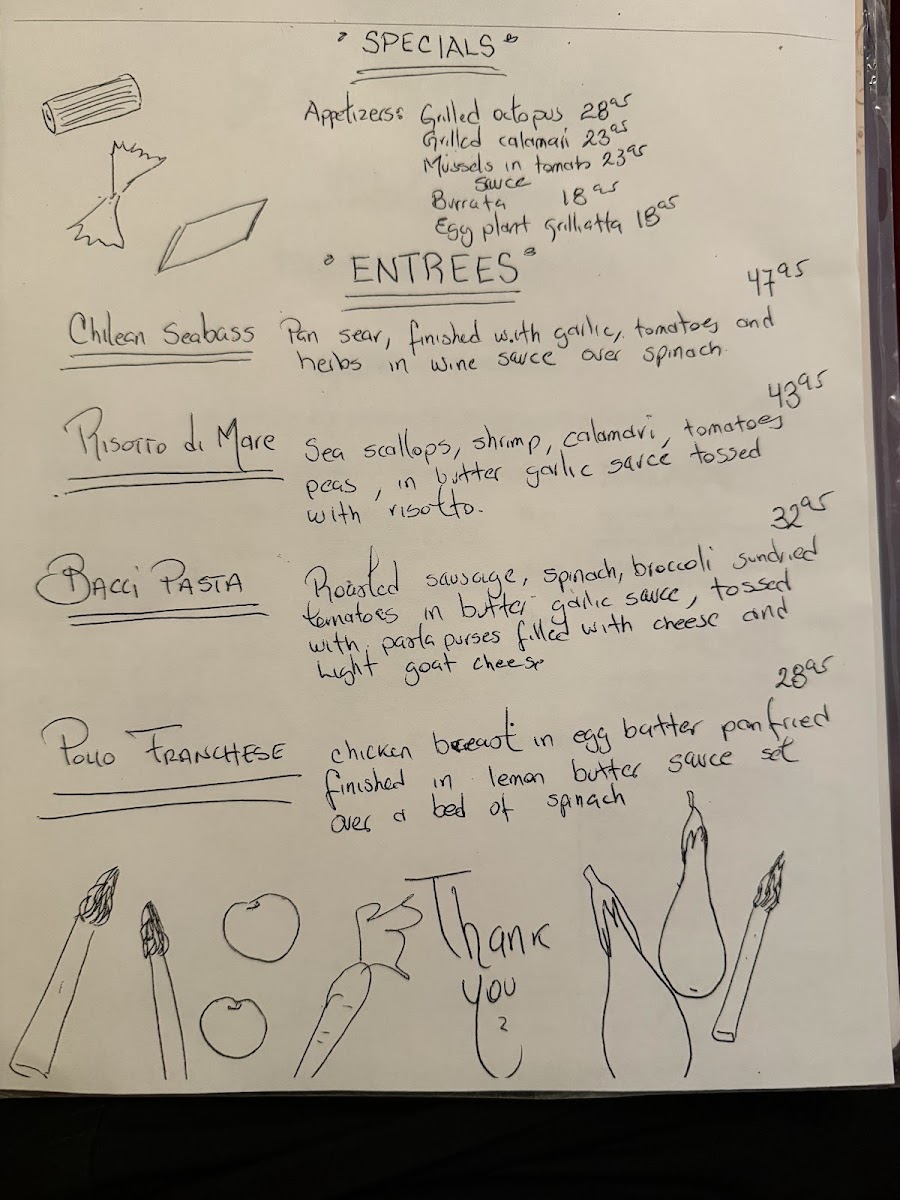 SPECIALS
Appetizers: Grilled octopus 28⁹⁵
Grilled calamari 23⁹⁵
Mussels in tomato 23⁹⁵
sauce
Burrata 18⁹⁵
Egg plant grilliatta 18⁹⁵
ENTREES
47⁹⁵
Chilean Seabass Pan sear, finished with garlic, tomatoes and
herbs in wine sauce over spinach
43⁹⁵
Risotto di Mare Sea scallops, shrimp, calamari, tomatoes
peas, in butter garlic sauce tossed
with risotto.
32⁹⁵
Bacci Pasta Roasted sausage, spinach, broccoli sundried
tomatoes in butter garlic sauce, tossed
with pasta purses filled with cheese and
light goat cheese
28⁹⁵
Pollo Franchese chicken breast in egg batter panfried
finished in lemon butter sauce set
over a bed of spinach
Thank
you